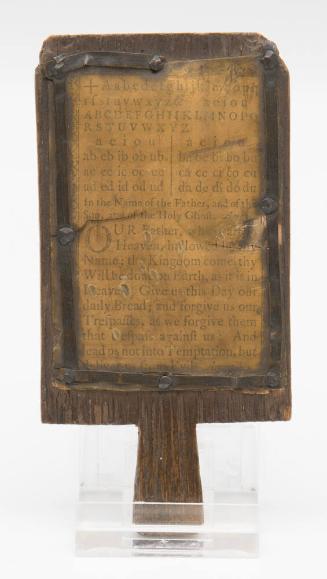 + Aabcdefghijklmnopq
rſstuvwxyz& aeiou
ABCDEFGHIJKLMNOPQ
RSTUVWXYZ
a e i o u a e i o u
ab eb ib ob ub ba be bi bo bu
ac ec ic oc uc ca ce ci co cu
ad ed id od ud da de di do du
In the Name of the Father, and of the
Son, and of the Holy Ghoſt.
OUR Father, who art in
Heaven, hallowed be thy
Name; thy Kingdom come, thy
Will be done on Earth, as it is in
Heaven. Give us this Day our
daily Bread; and forgive us our
Treſpaſſes, as we forgive them
that treſpaſs againſt us: And
lead us not into Temptation, but